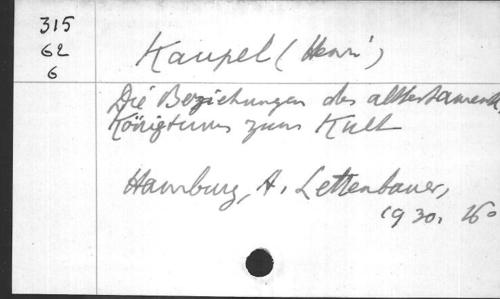 315
62
6
Kaupel (Henri)
Die Beziehungen des alttestamentl.
Königtums zum Kult
Hamburg, A. Lettenbauer,
1930. 16°